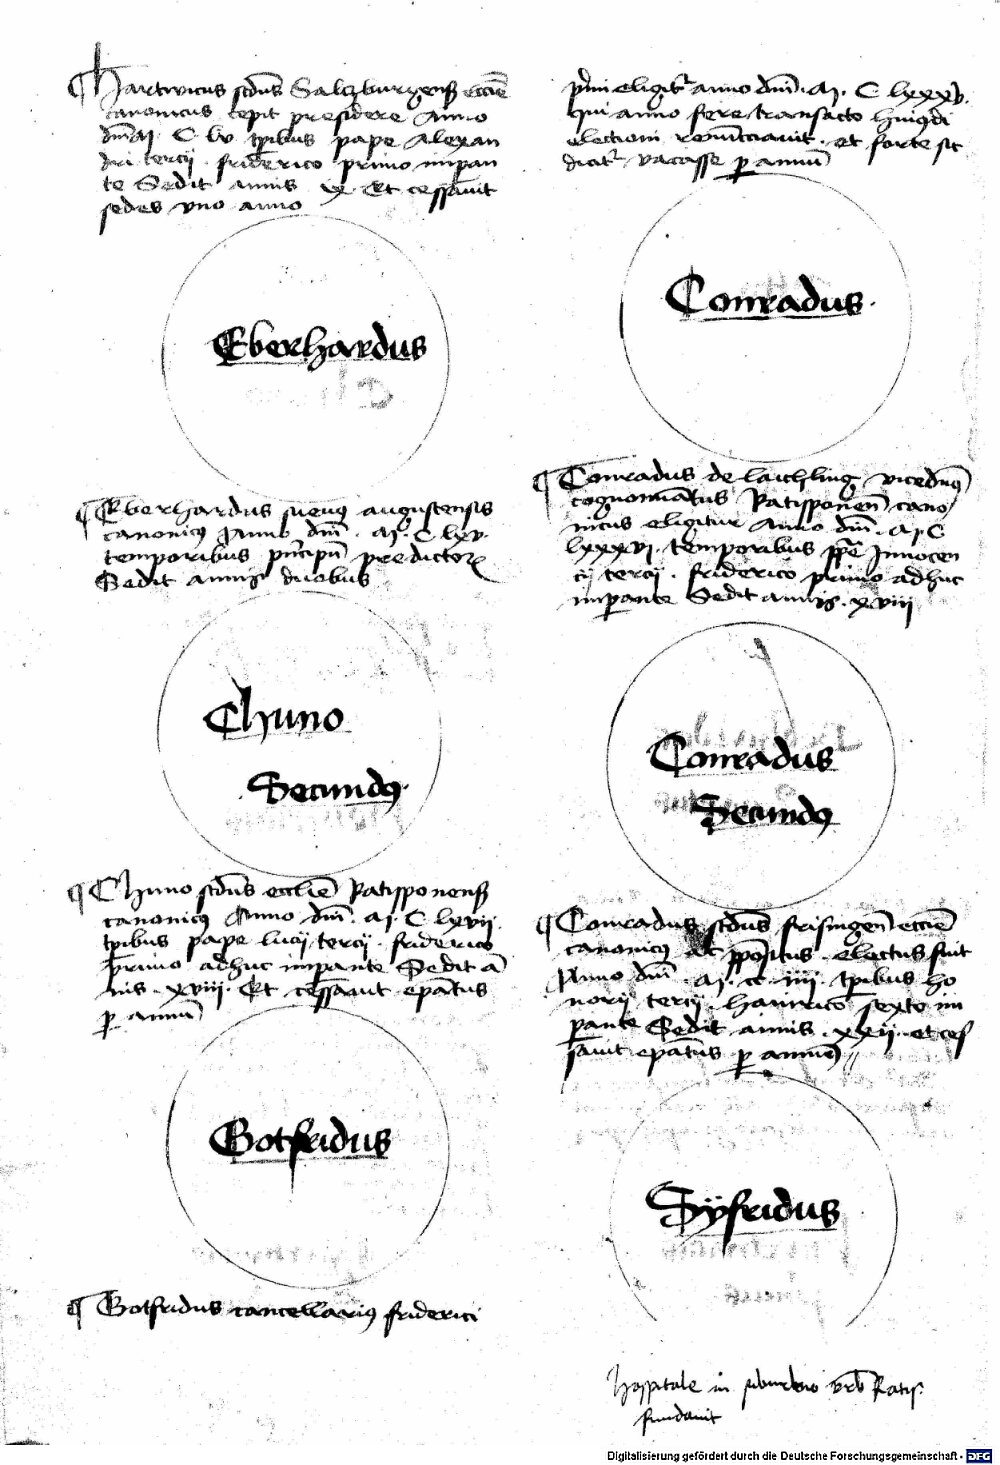 ¶ Hartwicus scdus Salczburgenß eccie
canonicus cepit presidere Anno
dm̄ M. C lv tpibus pape Alexan
dri tercij. friderico primo impan
te Sedit annis ix Et cessauit
sedes vno anno
Eberhardus
¶ Eberhardus sueuꝯ augustensis
canonicꝯ Anno dm̄. M. C lxv.
temporibus pncipū predictoꝝ
Sedit annis duobus
Chuno
Secundꝯ
¶ Chuno scdus ecclie Ratisponenß
canonicꝯ Anno dm̄. M. C lxvii.
tpibus pape lucij tercij. friderico
primo adhuc impante Sedit ā
nis. xviii. Et cessauit epatus
ꝑ annū
Gotfridus
¶ Gotfridus cancellariꝯ friderici
pimi eligitʳ anno dm̄. M. C lxxxv.
qui anno fere transacto huiꝯdi
electioni renūtciauit. et forte sic
dicitʳ vacasse ꝑ annū
Conradus.
¶ Conradus de laichling vicednꝯ
cognominatus Ratisponen̄ cano
nicus eligitur Anno dm̄. M C
lxxxvi. temporibus ppe Innocen
cij tercij. friderico primo adhuc
imperante Sedit annis. xviii
Conradus
Secundꝯ
¶ Conradus scdus frisingen̄ eccie
canonicꝯ ac ppositus. electus fuit
Anno dm̄. M. cc. iiii. tpibus ho
norij tercij. hainrico sexto im
pante Sedit annis. xxij. et ces
sauit epatus ꝑ annum //
Sÿfridus
Hospitale in suburbio vrb Ratis.
fundauit
Digitalisierung gefördert durch die Deutsche Forschungsgemeinschaft - DFG